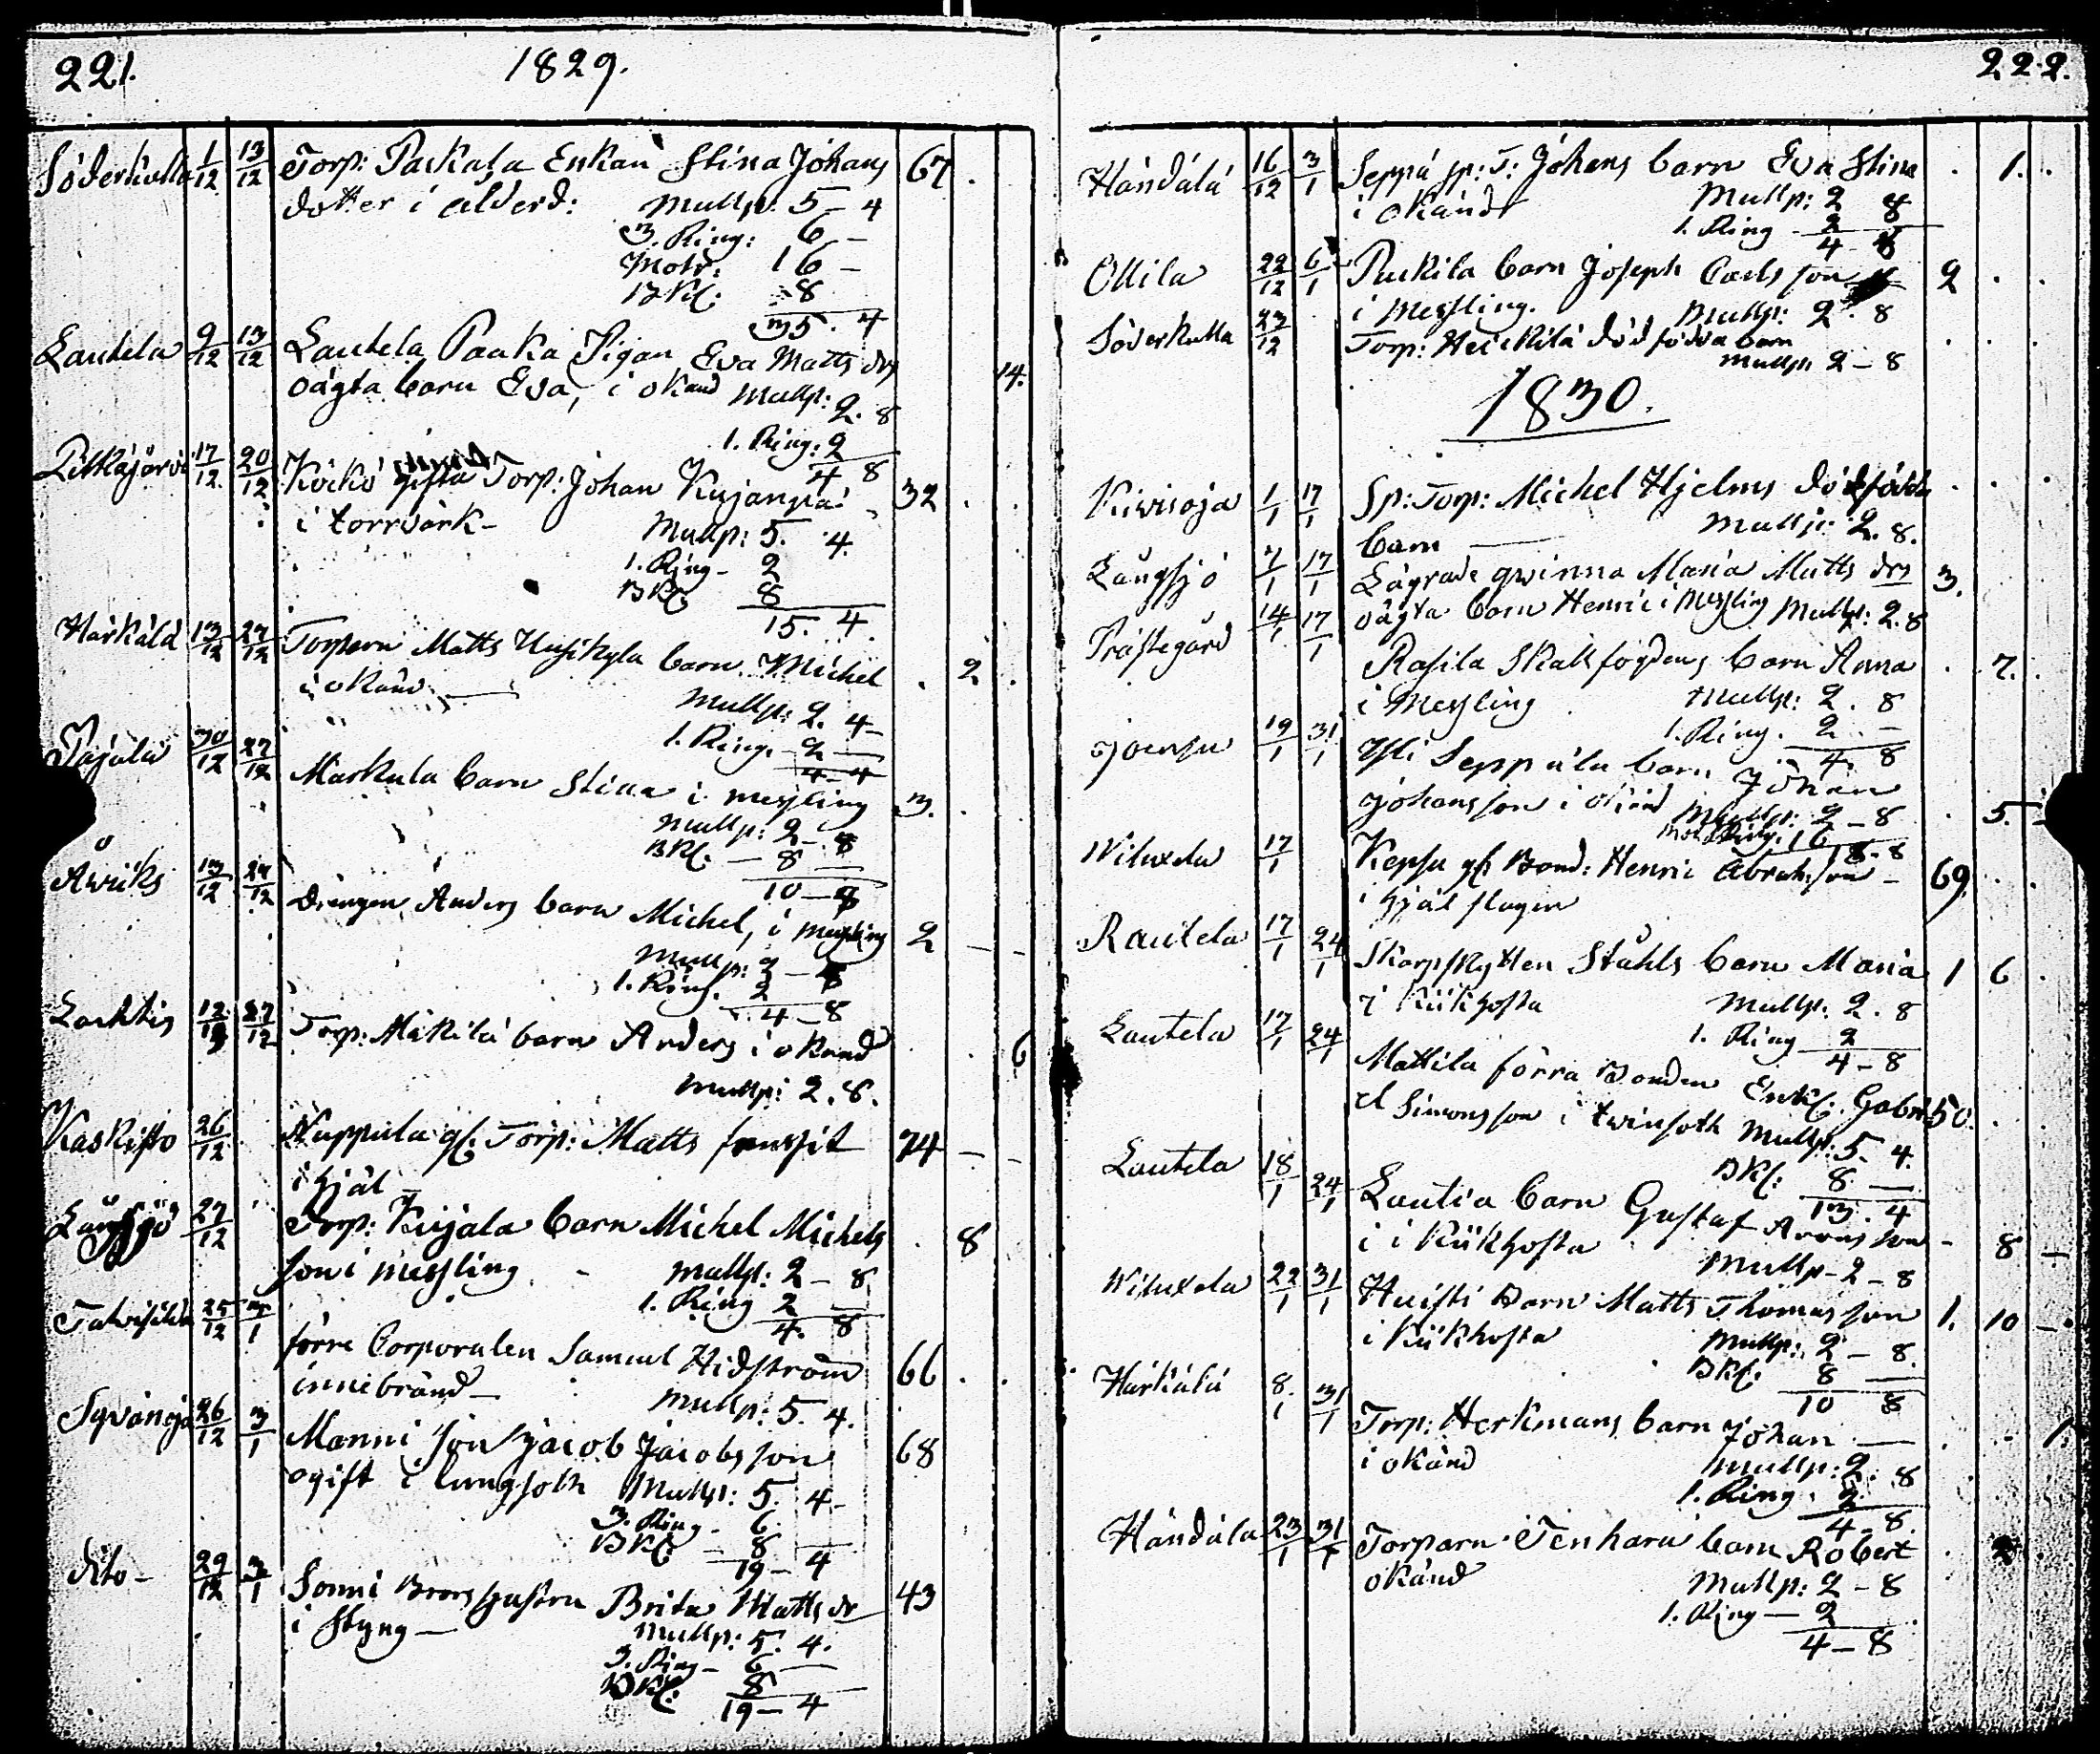 221. 1829.
Söderkulla 1/12 13/12 Torp: Paikala Enkan Stina Johans 67.
dotter i alderd: Mullp: 5 - 4
3. Ring: 6 -
Motr: 16 -
BKl: 8
35. 4
Lautela 9/12 13/12 Lautela Paaka Pigan Eva Matts drs
oägta barn Eva, i okänd Mullp: 2. 8 14.
1. Ring: 2
4 8
Pitkäjärvi 17/12 20/12 Köckö gifta Torp: Johan Kujanpää 32
i torrvärk - Mullp: 5. 4.
1. Ring - 2
BKl: 8
15. 4.
Härkälä 13/12 27/12 Torparn Matts Uusikyla barn Michel . 2 .
i okänd - Mullp: 2. 4 -
1. Ring. - 2 -
4 - 4
Pajula 20/12 27/12 Markula barn Stina i messling 3.
Mullp: 2 - 8
BKl. - 8 -
10 - 8
Åwiks 13/12 27/12 Drängen Anders barn Michel, i messling 2 - -
Mullp: 2 - 8
1. Ring. 2
4 - 8
Lachtis 12/12 27/12 Torp: Mäkilä barn Anders i okänd . . 6
Mullp: 2. 8.
Kaskisto 26/12 Nuppula gl: Torp: Matts 74 - -
ihjäl -
Långsjö 27/12 Torp: Kujala barn Michel Michels . 8
son i messling - Mullp: 2 - 8
1. Ring 2 -
4. 8
25/12 3/1 förre Corporalen Samuel Hidström 66 . .
innebränd - Mullp: 5. 4.
Syvänoja 26/12 3/1 Manni son Jacob Jacobsson 68
ogift i lungsoth Mullp: 5. 4 -
3. Ring - 6.
BKl: - 8
19 - 4
dito - 29/12 3/1 Sonni Brors hustru Brita Matts dr 43
i styng - Mullp: 5. 4.
3. Ring - 6 -
BKl: 8
19 - 4
222.
Händälä 16/12 3/1 Seppä sp: T: Johans barn Eva Stina . 1. .
i okändt Mullp: 2 8
1. Ring - 2
4 - 8
Ollila 22/12 6/1 Puckila barn Joseph Carlsson 2 . .
i messling. Mullp: 2. 8
Söderkulla 23/12 Torp: Heickilä dödfödda barn . . .
Mullp. 2 - 8
1830.
Kiwisoja 1/1 17/1 Sp: Torp: Michel Hjelms dödfödda . . .
barn - Mullp: 2. 8.
Långsjö 7/1 17/1 Lägrade qwinna Maria Matts drs 3.
oägta barn Henric i messling Mullp: 2. 8
Prästegård 14/1 17/1 Rasila Skallfogdens barn Anna . 7. .
i messling Mullp: 2. 8
1. Ring. 2 -
4. 8
Joensu 19/1 31/1 Yli Seppälä barn Johan
Johansson i okänd Mullp: 2 - 8 . 5 -
16
18. 8
Wiluxela 17/1 Kepsu gl Bond: Henric Abrahsson - 69. . .
ihjälslagen
Rautela 17/1 24/1 Skarpskytten Ståhls barn Maria 1 6 .
i Kikhosta Mullp: 2. 8
1. Ring 2
4 - 8
Lautela 17/1 24/1 Mattila förra Bonden Enkl: Gabri 50. .
el Simonsson i twinsoth Mullp: 5. 4.
BKl: 8 -
13. 4
Lautela 18/1 24/1 Lautia barn Gustaf Aronsson - 8 -
i i Kikhosta Mullp - 2 - 8
Wiluxela 22/1 31/1 Huisti Barn Matts Thomasson 1. 10 -
i Kikhosta Mullp: 2 - 8.
BKl: 8 -
10 8
Härkälä 8/1 31/1 Torp: Herkmans barn Johan - . - 1.
i okänd Mullp: 2. 8
1. Ring. 2.
4 - 8.
Händälä 23/1 31/1 Torparn Tenhara barn Robert . 2 .
okänd Mullp: 2 - 8
1. Ring - 2 .
4 - 8